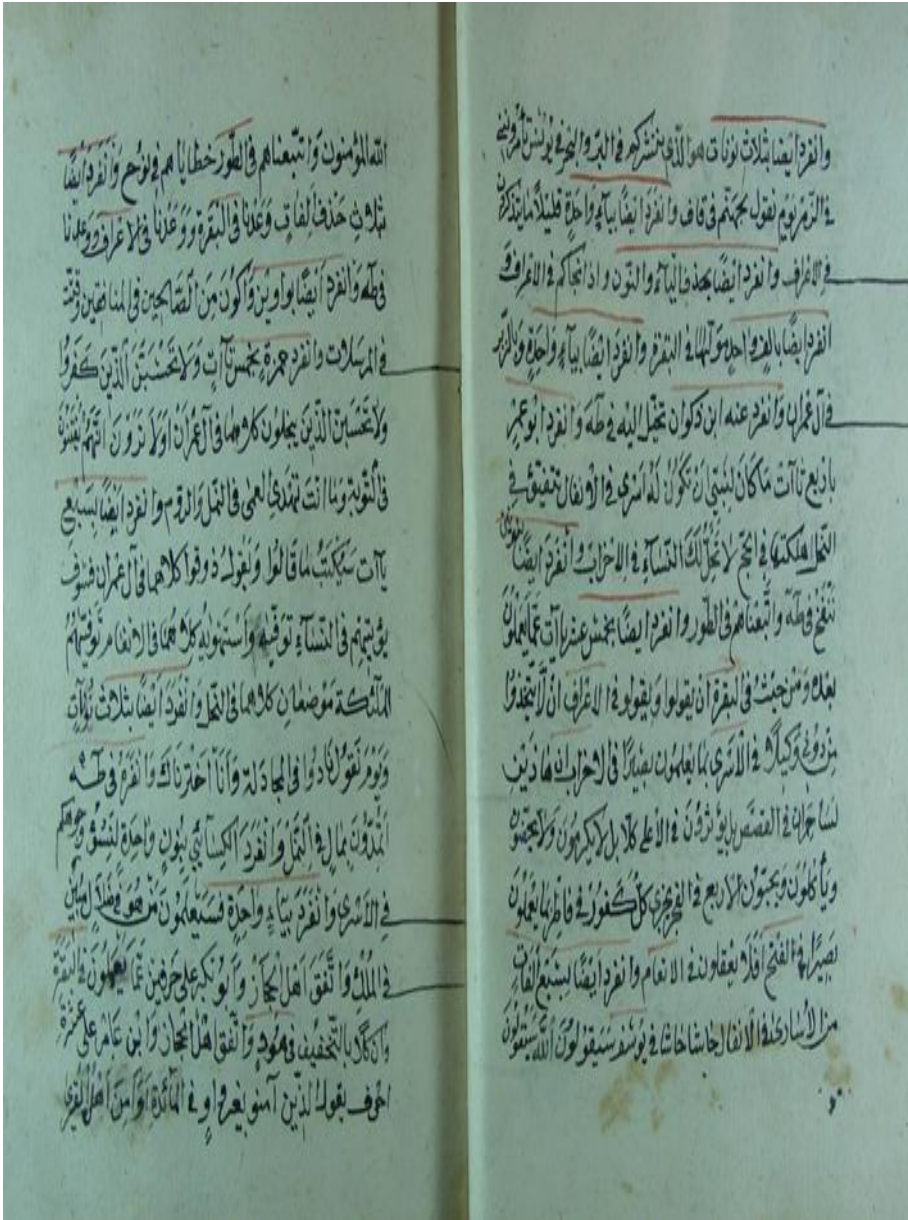 وانفرد ايضا بثلاث نونات هو الذي ينشركم في البر والبحر في يونس تامرونني
في الزمر يوم نقول لجهنم في قاف وانفرد ايضا بياء واحدة قليلا ما يتذكرون
في الاعراف وانفرد ايضا بحذف الياء والنون واذ انجاكم في الاعراف و
انفرد ايضا بالف واحدة مولها في البقرة وانفرد ايضا بباء واحدة وبالزبر
في آل عمران وانفرد عنه ابن ذكوان تخيل اليه في طه وانفرد ابو عمرو
باربع تاآت ما كان لنبي ان تكون له اسرى في الانفال
النحل اهلكتها في الحج لا تحل لك النساء في الاحزاب وانفرد ايضا بنونين
ننفخ في طه واتبعناهم في الطور وانفرد ايضا بخمس عشر ياآت عما يعملون
بعده ومن حيث في البقرة ان يقولوا ويقولوا في الاعراف ان لا يتخذوا
من دوني وكيلا في الاسرى بما يعملون بصيرا في الاحزاب
لساحران في القصص بل يؤثرون في الاعلى كلا بل لا يكرمون ولا يحضون
ويأكلون ويحبون الاربع في الفجر يجزى كل كفور في فاطر بما يعملون
بصيرا في الفتح افلا يعقلون في الانعام وانفرد ايضا بسبع الفات
من الأسارى في الانفال حاشا حاشا في يوسف سيقولون الله سيقولون
الله المؤمنون واتبعناهم في الطور خطاياهم في نوح وانفرد ايضا
بثلاث حذف الفات وعدنا في البقرة ووعدنا في الاعراف ووعدنا
في طه وانفرد ايضا بواوين واكون من الصالحين في المنافقين وقتت
في المرسلات وانفرد حمزة بخمس تاآت ولا تحسبن الذين كفروا
ولا تحسبن الذين يبخلون كلاهما في آل عمران اولا ترون انهم يفتنون
في التوبة وما انت تهدي العمى في النمل والروم وانفرد ايضا بسبع
ياآت سيكتب ما قالوا ويقول ذوقوا كلاهما في آل عمران فسوف
يؤتيهم في النساء توفيه واستهويه كلاهما في الانعام توفيهم
الملئكة موضعان كلاهما في النحل وانفرد ايضا بثلاث نونات
ويوم نقول نادوا في وانا اخترناك وانفرد في طه
اتمدون بمال في النمل وانفرد الكسائي بنون واحدة لنسؤ وجوهكم
في الاسرى وانفرد بياء واحدة فسيعلمون من هو في ضلال مبين
في الملك واتفق اهل الحجاز وابو بكر على حرفين عما يعملون في البقرة
وان كلا بالتخفيف في هود واتفق اهل الحجاز وابن عامر على عشرة
احرف يقول الذين آمنو بغير واو في المائدة او امن اهل القرى